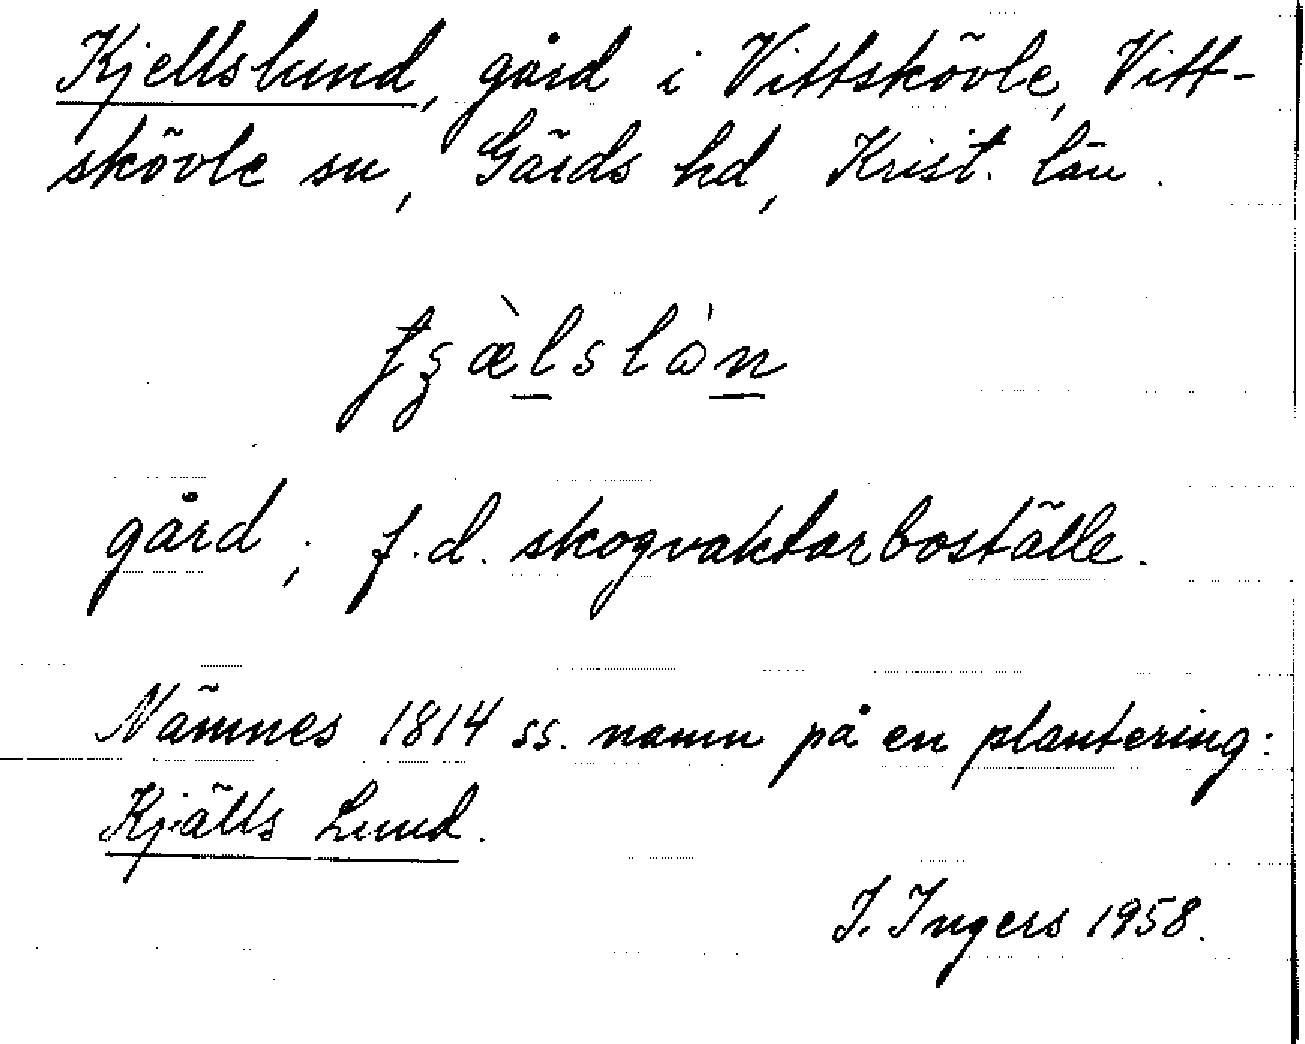 Kjellslund, gård i Vittskövle, Vitt-
skövle sn, Gärds hd, Krist. län.
gård; f.d. skogvaktarboställe.
Nämnes 1814 ss. namn på en plantering:
Kjälls Lund.
I. Ingers 1958.